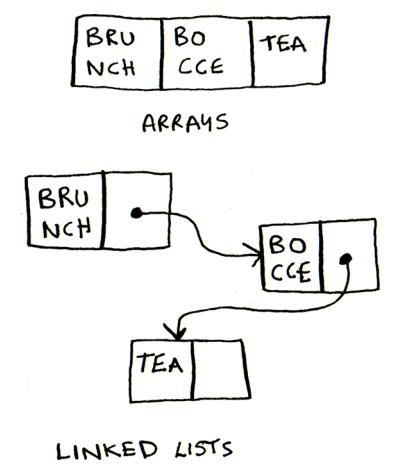 BRU
NCH
BO
CCE
TEA
ARRAYS
BRU
NCH
BO
CCE
TEA
LINKED LISTS